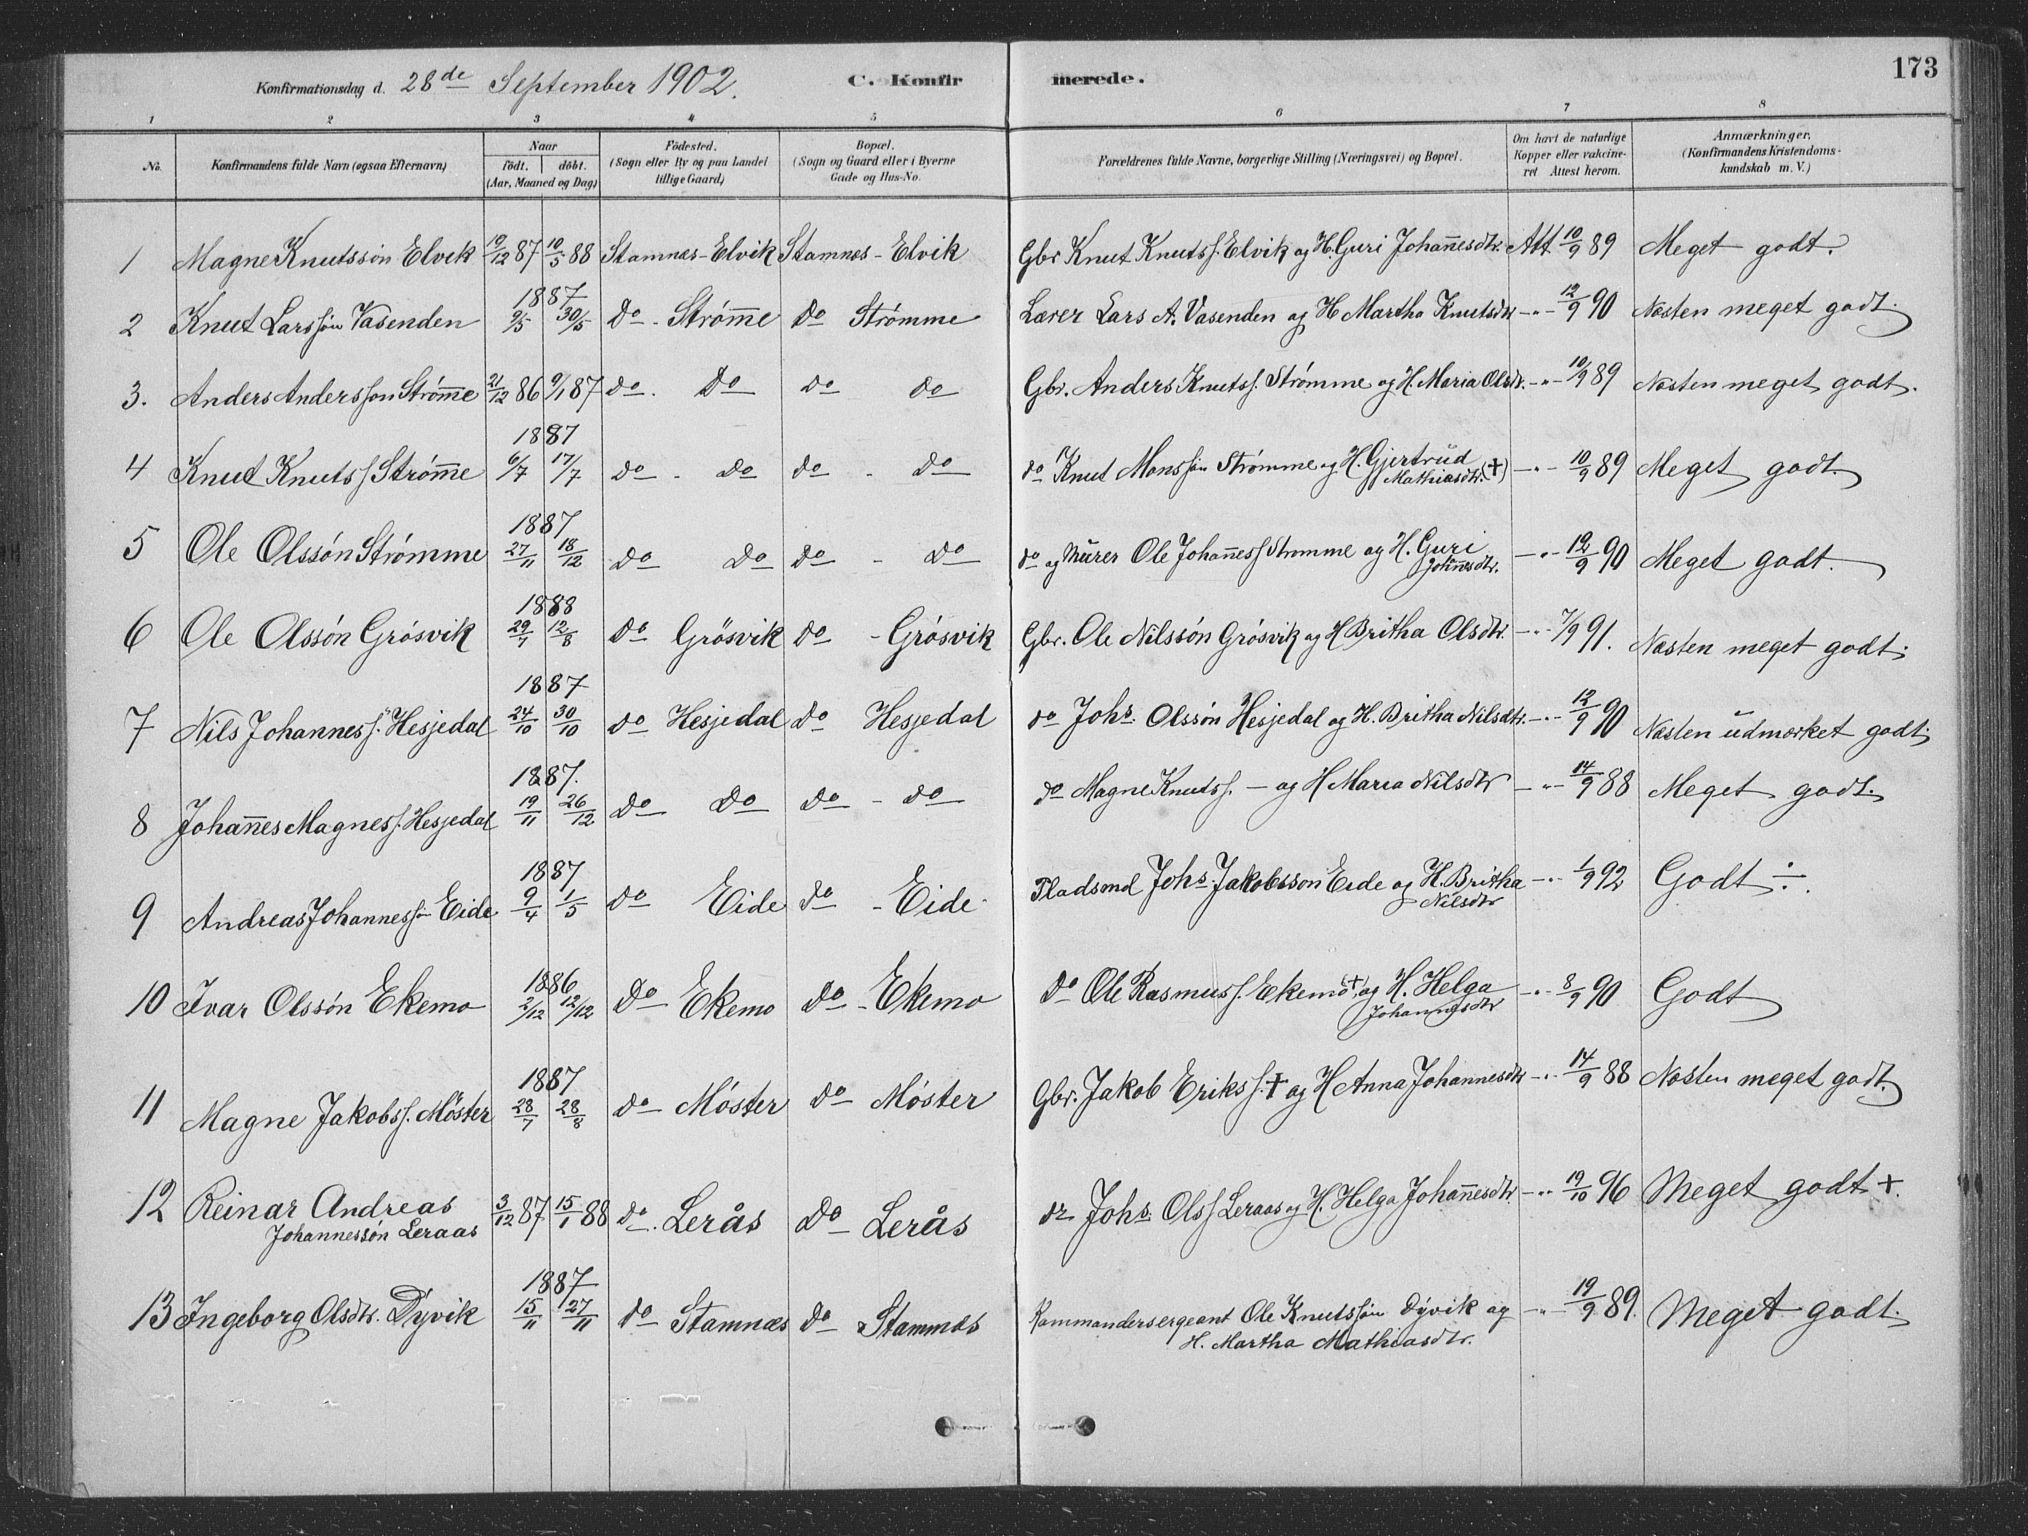 Konfirmationsdag d. 28de September 1902. C. Konfir merede. 173
1 2 3 4 5 6 7 8
No. Konfirmandens fulde Navn (ogsaa Efternavn) Naar födt. döbt. (Aar, Maaned og Dag) Födested. (Sogn eller By og paa Landet tillige Gaard) Bopæl. (Sogn og Gaard eller i Byerne Gade og Hus-No. Forældrenes fulde Navne, borgerlige Stilling (Næringsvei) og Bopæl. Om havt de naturlige Kopper eller vakcineret Attest herom. Anmærkninger. (Konfirmandens Kristendomskundskab m. V.)
1 Magne Knutssön Elvik 19/12 87 10/5 88 Stamnæs - Elvik Stamnæs - Elvik Gbr Knut Knutss. Elvik og H. Guri Johan̄esdtr. Att. 10/9 89 Meget godt.
2 Knut Larssön Vasenden 1887 9/5 30/5 do - Ström̄e do Strömme Lærer Lars A. Vasenden og H Martha Knutsdtr -"- 12/9 90 Næsten meget godt.
3. Anders Anderssøn Ström̄e 21/12 86 9/1 87 do - do do do Gbr. Anders Knutss. Strömme og H. Maria Olsdtr. -"- 10/9 89 Næsten meget godt.
4 Knut Knutss Ström̄e 1887 6/7 17/7 do - do do - do do Knut Monssön Strömme og H. Gjertrud Mathiasdtr. (+) -"- 10/9 89 Meget godt.
5 Ole Olssön Strömme 1887 27/11 18/12 do do do - do do og Murer Ole Johan̄ess Strömme og H. Guri Joh̄nesdtr. -"- 12/9 90 Meget godt.
6 Ole Olssön Grösvik 1888 29/7 12/8 do Grösvik do - Grösvik Gbr. Ole Nilssön Grösvik og H Britha Olsdtr. -"- 7/9 91. Næsten meget godt.
7 Nils Johanness. Hesjedal 1887 24/10 30/10 do Hesjedal do Hesjedal do Johs. Olssön Hesjedal og H. Britha Nilsdtr. -"- 12/9 90 Næsten udmærket godt.
8 Johan̄es Magness. Hesjedal 1887. 19/11 26/12 do do do - do do Magne Knutss. - og H Maria Nilsdtr -"- 14/9 88 Meget godt.
9 Andreas Johannessön Eide 1887 9/4 1/5 do Eide do - Eide Pladsmd Johs. Jakobsson Eide og H. Britha Nilsdtr -"- 1/9 92 Godt ÷.
10 Ivar Olssön Ekemo 1886 2/12 12/12 do Ekemo do - Ekemo do Ole Rasmuss. Ekemo (+) og H. Helga Johannesdtr -"- 8/9 90 Godt
11 Magne Jakobss. Möster 1887 28/7 28/8 do Möster do Möster Gbr. Jakob Erikss. + og H Anna Johannesdtr -"- 14/9 88 Næsten meget godt.
12 Reinar Andreas Johannessön Leraas 3/12 87 15/1 88 do. Lerås do Lerås do Johs. Olss Leraas og H. Helga Johan̄esdtr. -"- 19/10 96 Meget godt +.
13 Ingeborg Olsdtr. Dyvik 1887 15/11 27/11 do Stamnæs do Stamnæs Kommandersergeant Ole Knutssön Dyvik og H. Martha Mathiasdtr. -"- 19/9 89. Meget godt.